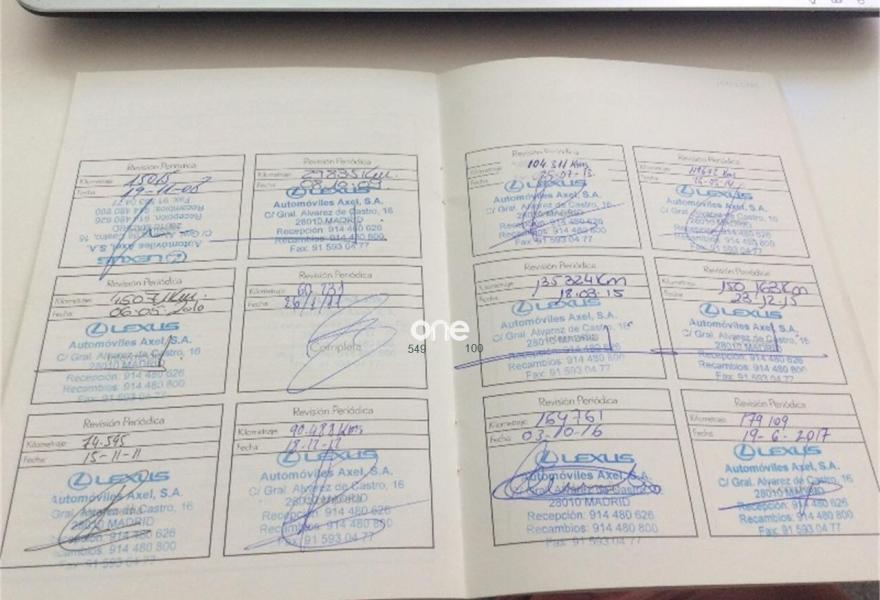 Revisión Periódica
Kilometraje:
Fecha:
LEXUS
Automóviles Axel, S.A.
C/ Gral. Alvarez de Castro, 16
28010 MADRID
Recepción: 914 480 626
Recambios: 914 480 800
Fax: 91 593 04 77
Revisión Periódica
Kilometraje: 29835 Km.
Fecha:
LEXUS
Automóviles Axel, S.A.
C/ Gral. Alvarez de Castro, 16
28010 MADRID
Recepción: 914 480 626
Recambios: 914 480 800
Fax: 91 593 04 77
Revisión Periódica
Kilometraje:
Fecha: 06-05-2010
LEXUS
Automóviles Axel, S.A.
C/ Gral. Alvarez de Castro, 16
28010 MADRID
Recepción: 914 480 626
Recambios: 914 480 800
Fax: 91 593 04 77
Revisión Periódica
Kilometraje:
Fecha: 26/1/11
Completa
Revisión Periódica
Kilometraje: 74.595
Fecha: 15-11-11
LEXUS
Automóviles Axel, S.A.
C/ Gral. Alvarez de Castro, 16
28010 MADRID
Recepción: 914 480 626
Recambios: 914 480 800
Fax: 91 593 04 77
Revisión Periódica
Kilometraje: 90.483 Kms
Fecha: 18-12-12
LEXUS
Automóviles Axel, S.A.
C/ Gral. Alvarez de Castro, 16
28010 MADRID
Recepción: 914 480 626
Recambios: 914 480 800
Fax: 91 593 04 77
Revisión Periódica
104.311 Kms
25-07-13
LEXUS
Automóviles Axel, S.A.
C/ Gral. Alvarez de Castro, 16
28010 MADRID
Recepción: 914 480 626
Recambios: 914 480 800
Fax: 91 593 04 77
Revisión Periódica
Kilometraje:
Fecha:
LEXUS
Automóviles Axel, S.A.
C/ Gral. Alvarez de Castro, 16
28010 MADRID
Recepción: 914 480 626
Recambios: 914 480 800
Fax: 91 593 04 77
Revisión Periódica
Kilometraje: 135324 Km
Fecha: 18-03-15
LEXUS
Automóviles Axel, S.A.
C/ Gral. Alvarez de Castro, 16
28010 MADRID
Recepción: 914 480 626
Recambios: 914 480 800
Fax: 91 593 04 77
Revisión Periódica
Kilometraje: 150.763 Km
Fecha: 23-12-15
LEXUS
Automóviles Axel, S.A.
C/ Gral. Alvarez de Castro, 16
28010 MADRID
Recepción: 914 480 626
Recambios: 914 480 800
Fax: 91 593 04 77
Revisión Periódica
Kilometraje: 164761
Fecha: 03-10-16
LEXUS
Automóviles Axel, S.A.
C/ Gral. Alvarez de Castro
28010 MADRID
Recepción: 914 480 626
Recambios: 914 480 800
Fax: 91 593 04 77
Revisión Periódica
Kilometraje: 179109
Fecha: 19-6-2017
LEXUS
Automóviles Axel, S.A.
C/ Gral. Alvarez de Castro, 16
28010 MADRID
Recepción: 914 480 626
Recambios: 914 480 800
Fax: 91 593 04 77
one
549 100